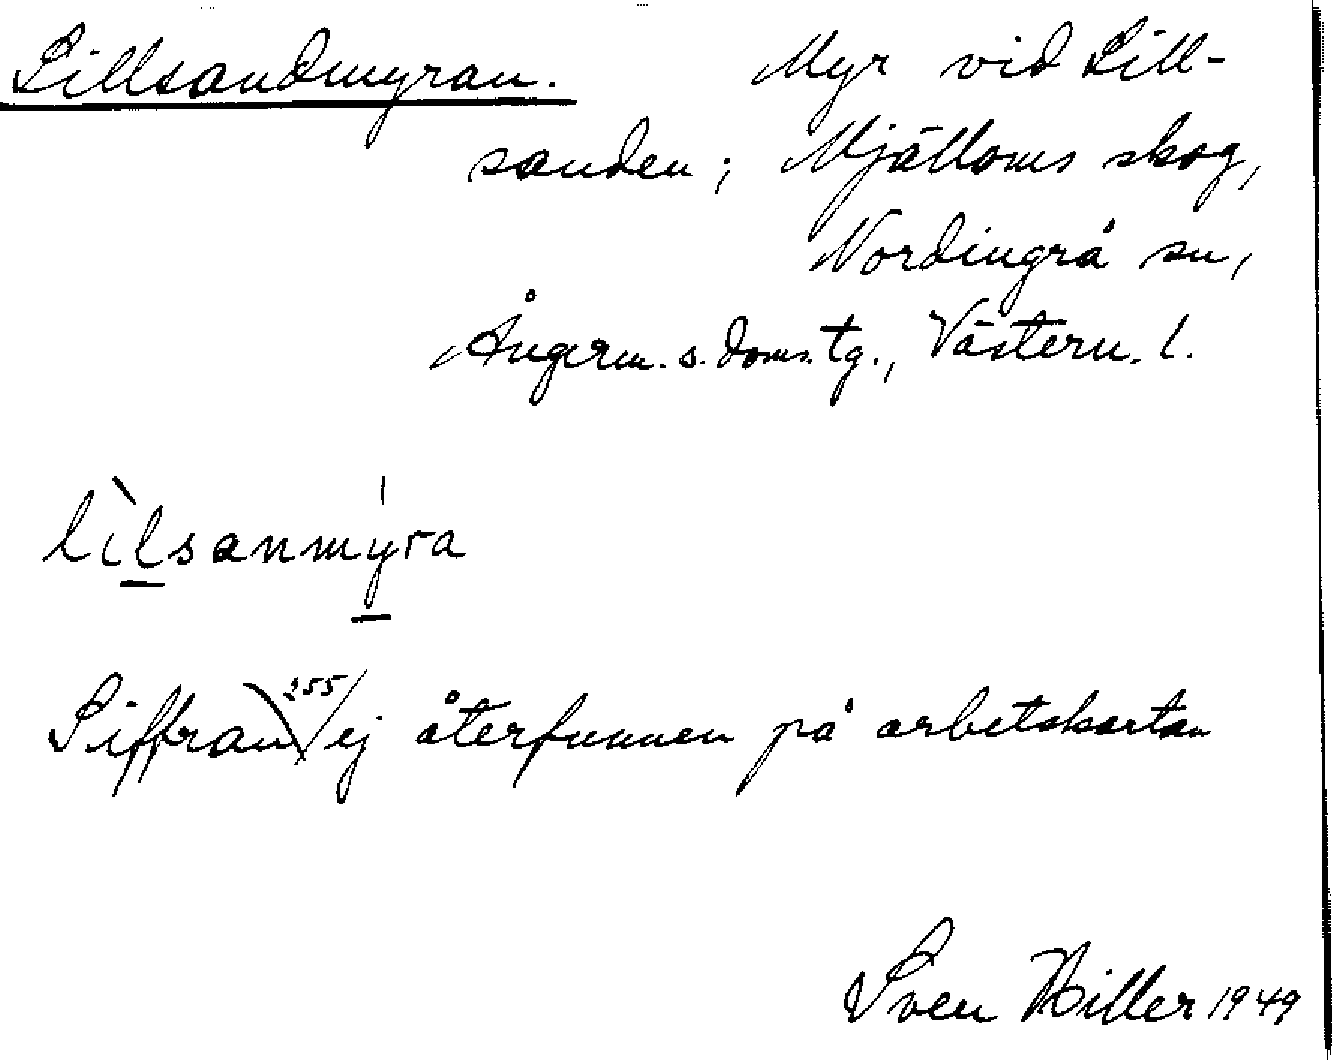 Lillsandmyran. Myr vid Lill-
sanden; Mjälloms skog,
Nordingrå sn,
Ångerm. s. doms. tg., Västern. l.
lìlsanmýra
Siffran 255 ej återfunnen på arbetskartan
Sven Hiller 1949